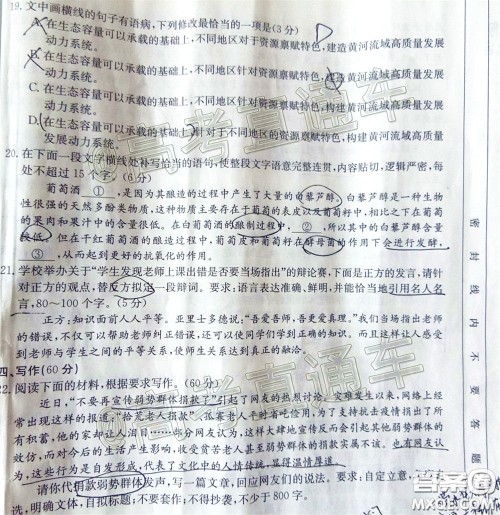 19.文中画横线的句子有语病,下列修改最恰当的一项是(3分)
A.在生态容量可以承载的基础上,不同地区对于资源禀赋特色,建造黄河流域高质量发展
动力系统。
B.在生态容量可以承载的基础上,不同地区针对资源禀赋特色,建造黄河流域高质量发展
动力系统。
C.在生态容量可以承载的基础上,不同地区针对资源禀赋特色,构建黄河流域高质量发展
动力系统。
D.在生态容量可以承载的基础上,针对于不同地区的资源禀赋特色,构建黄河流域高质量
发展动力系统。
20.在下面一段文字横线处补写恰当的语句,使整段文字语意完整连贯,内容贴切,逻辑严密,每
处不超过15个字。(6分)
葡萄酒 ① ,是因为其酿造的过程中产生了大量的白藜芦醇。白藜芦醇是一种生物
性很强的天然多酚类物质,这种物质主要存在于葡萄的表皮以及葡萄籽中,相比之下在葡萄
的果肉和果汁中的含量很低。在白葡萄酒的酿制过程中, ② ,所以其中的白藜芦醇含量
较低。但在干红葡萄酒的酿造过程中,葡萄皮和葡萄籽在酵母菌的作用下会进行发酵,
③ ,从而起到更好的抗氧化的作用。
21.学校举办关于“学生发现老师上课出错是否要当场指出”的辩论赛,下面是正方的发言,请针
对正方的观点,替反方拟定一段辩词。要求:语言表达准确、鲜明,并能恰当地引用名人名
言,80~100个字。(5分)
正方:知识面前人人平等。亚里士多德说:“吾爱吾师,吾更爱真理。”我们当场指出老师
的错误,不仅可以帮助老师纠正错误,还可以使同学们学到正确的知识。而且这样让人感受
到老师与学生之间的平等关系,使师生关系达到真正的融洽。
四、写作(60分)
22.阅读下面的材料,根据要求写作。(60分)
近日,“不要再宣传弱势群体捐款了”引起了网友的热烈讨论。灾难发生以来,网络上经
常出现这样的报道:“拾荒老人捐款”、孤寡老人平时省吃俭用,为了支持抗击疫情捐出了所
有积蓄,他的家却让人泪目……部分网友认为,这样大肆地宣传反而会引起其他弱势群体的
效仿,而对今后的生活产生影响,收受贫苦老人甚至弱势群体的捐款实属不该。也有网友认
为,这些行为是自发形成,代表了文化中的人情传统,显得温情厚道。
请你代捐款弱势群体发声,写一篇文章,回应网友们的说法。要求:自定立意,
选,明确文体,自拟标题;不要套作;不得抄袭,不少于800字。
密
封
线
内
不
要
答
题
高考直通车
高考直通车
答案圈
MXQE.COM